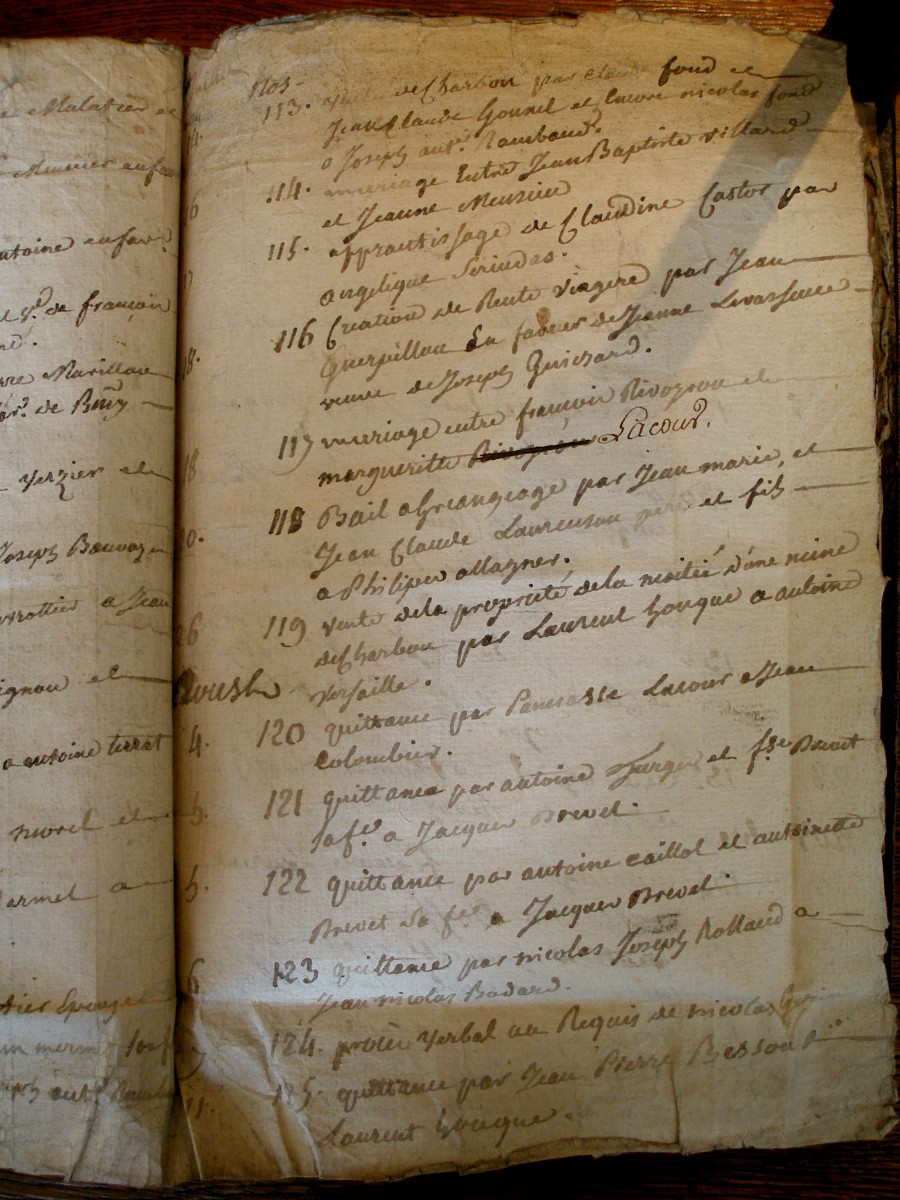 e Malatier et
Munier enfa
antoine enfan
et v.e de francoise
né.
rre Marillau
de Bruy
verzier et
Joseph Bauvoy
rrottier a Jean
ignon et
a antoine terrat
morel et
armel a
tier Epouge
un mermo
juillet
nos
113. vente de Charbon par Claude fond et
Jean Claude Gounel et Encore nicolas fond
a Joseph ant.e Rambaud.
6 114. mariage Entre Jean Baptiste villard
et Jeanne Meusnier
115. apprantissage de Claudine Castor par
angelique Seriudas.
116 Creation de Rente viagere par Jean
18. Guerpillon En faveur de Jeanne Levasseure
veuve de Joseph Guichard.
117 mariage entre francois Rivoyron et
18 margueritte Lacour.
118 Bail a Grangeage par Jean marie, et
0. Jean Claude Laurenson pere et fils
a Philipeu allagner.
119 vente de la propriété de la moitié d'une mine
26 de Charbon par Laurent Gouque a antoine
versaille.
aoust
4. 120 quittance par Pancrasse Lacour a Jean
Colombier.
5. 121 quittance par antoine Jurge et f.se Brevet
sa f.e a Jacque Brevet.
5. 122 quittance par antoine caillol et antoinette
Brevet sa f.e a Jacque Brevet.
6 123 quittance par nicolas Joseph Rolland a
Jean nicolas Badard.
7 124. procès verbal au Requis de nicolas
11. 125. quittance par Jean Pierre Besson a
Laurent Gouque.